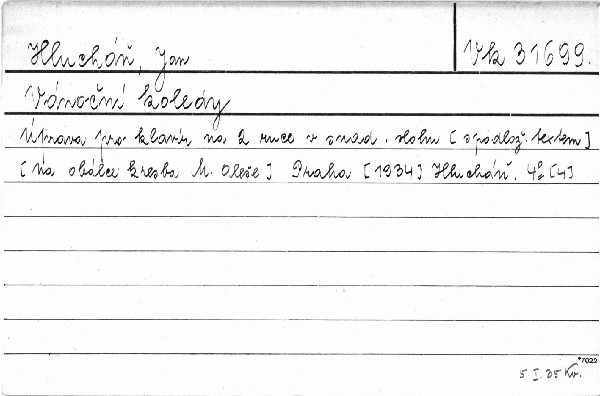 Hlucháň, Jan
Vk 31699.
Vánoční koledy
Úprava pro klavír na 2 ruce v snad. slohu [s podlož. textem]
[Na obálce kresba M. Aleše] Praha [1934] Hlucháň. 4° [4]
*7022
5 I. 35 Kv.